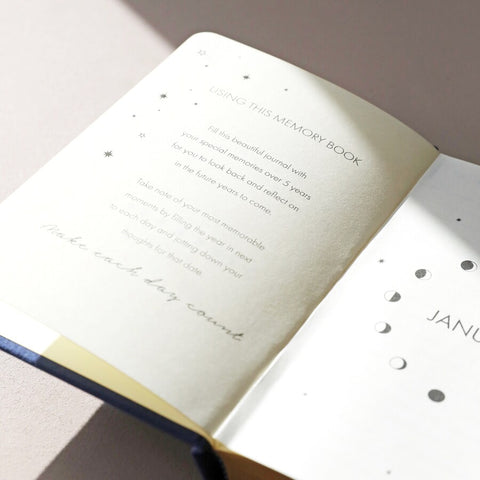 USING THIS MEMORY BOOK
Fill this beautiful journal with
your special memories over 5 years
for you to look back and reflect on
in the future years to come.
Take note of your most memorable
moments by filling the year in next
to each day and jotting down your
thoughts for that date.
Make each day count
JANU